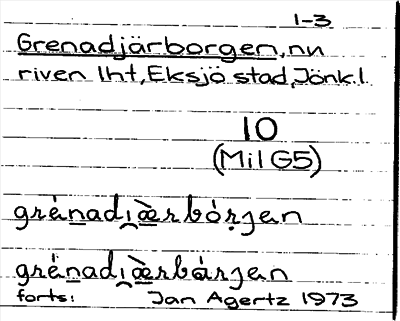 1-3
Grenadjärborgen, nu
riven lht, Eksjö stad, Jönk.l.
10
(Mil G5)
grènadi̯æ̀rbórjen
grènadi̯æ̀rbárjen
forts: Jan Agertz 1973